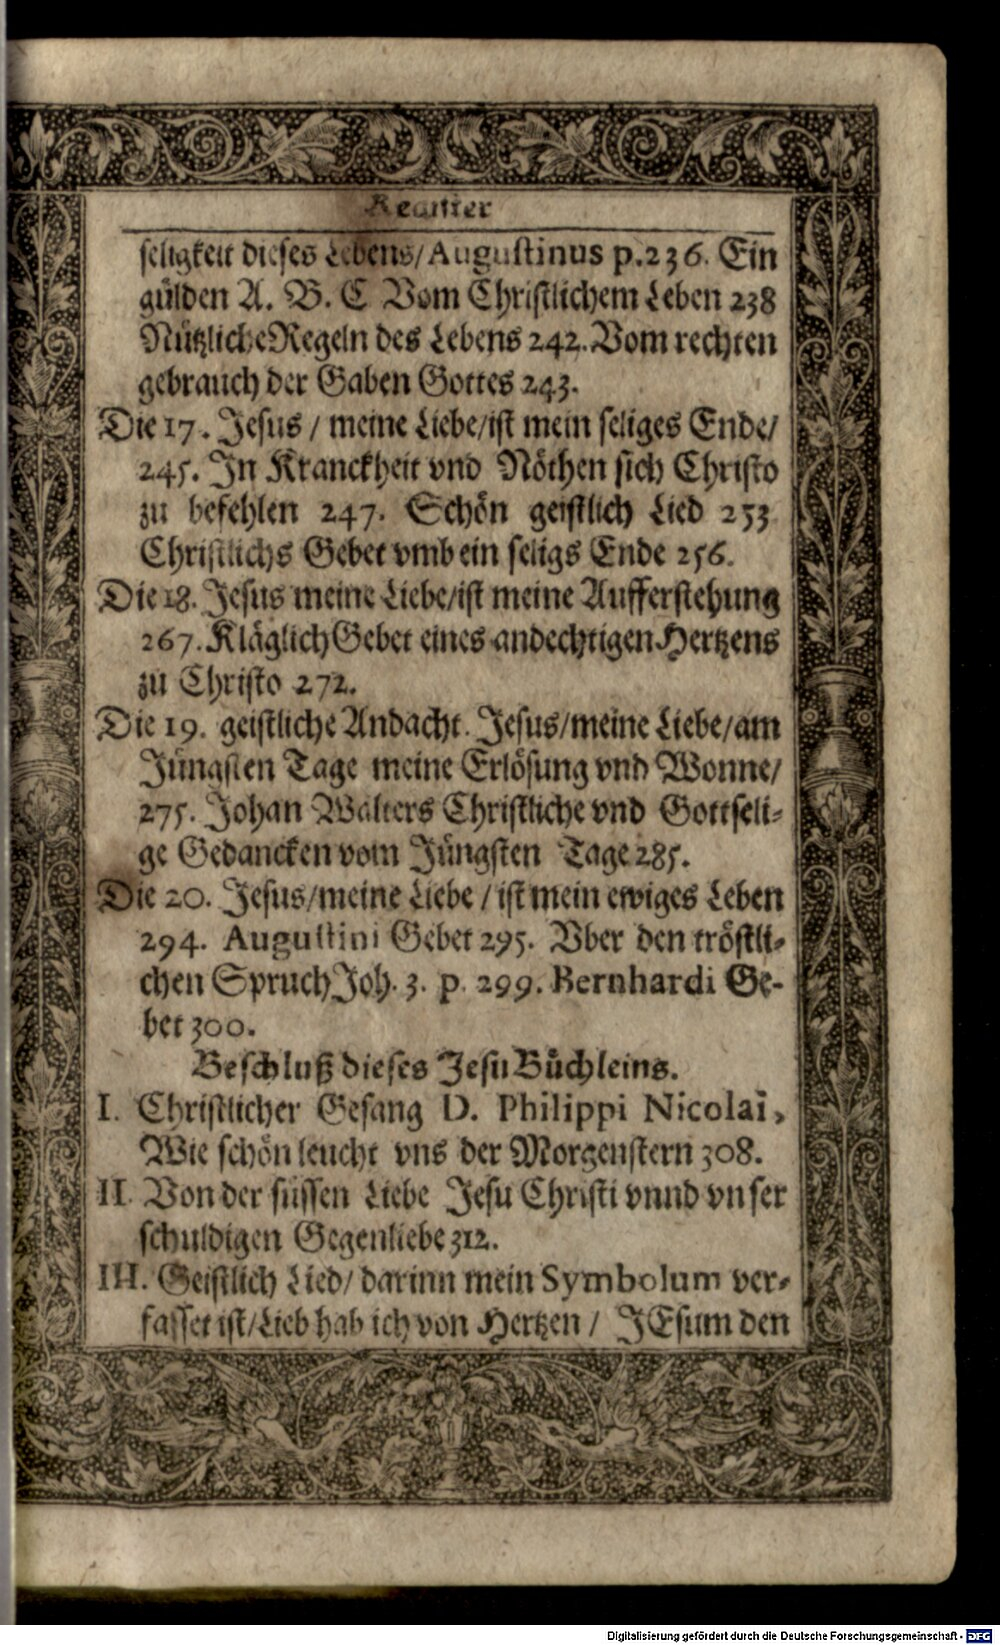 Register
seligkeit dieses Lebens/Augustinus p.236. Ein
gülden A. B. C Vom Christlichem Leben 238
Nützliche Regeln des Lebens 242. Vom rechten
gebrauch der Gaben Gottes 243.
Die 17. Jesus / meine Liebe/ist mein seliges Ende/
245. In Kranckheit vnd Nöthen sich Christo
zu befehlen 247. Schön geistlich Lied 253
Christlichs Gebet vmb ein seligs Ende 256.
Die 18. Jesus meine Liebe/ist meine Aufferstehung
267. Kläglich Gebet eines andechtigen Hertzens
zu Christo 272.
Die 19. geistliche Andacht. Jesus/meine Liebe/am
Jüngsten Tage meine Erlösung vnd Wonne/
275. Johan Walters Christliche vnd Gottseli-
ge Gedancken vom Jüngsten Tage 285.
Die 20. Jesus/meine Liebe / ist mein ewiges Leben
294. Augustini Gebet 295. Vber den tröstli-
chen Spruch Joh. 3. p. 299. Bernhardi Ge-
bet 300.
Beschluß dieses Jesu Büchleins.
I. Christlicher Gesang D. Philippi Nicolai,
Wie schön leucht vns der Morgenstern 308.
II. Von der süssen Liebe Jesu Christi vnnd vnser
schuldigen Gegenliebe 312.
III. Geistlich Lied/ darinn mein Symbolum ver-
fasset ist/Lieb hab ich von Hertzen / JEsum den
Digitalisierung gefördert durch die Deutsche Forschungsgemeinschaft - DFG